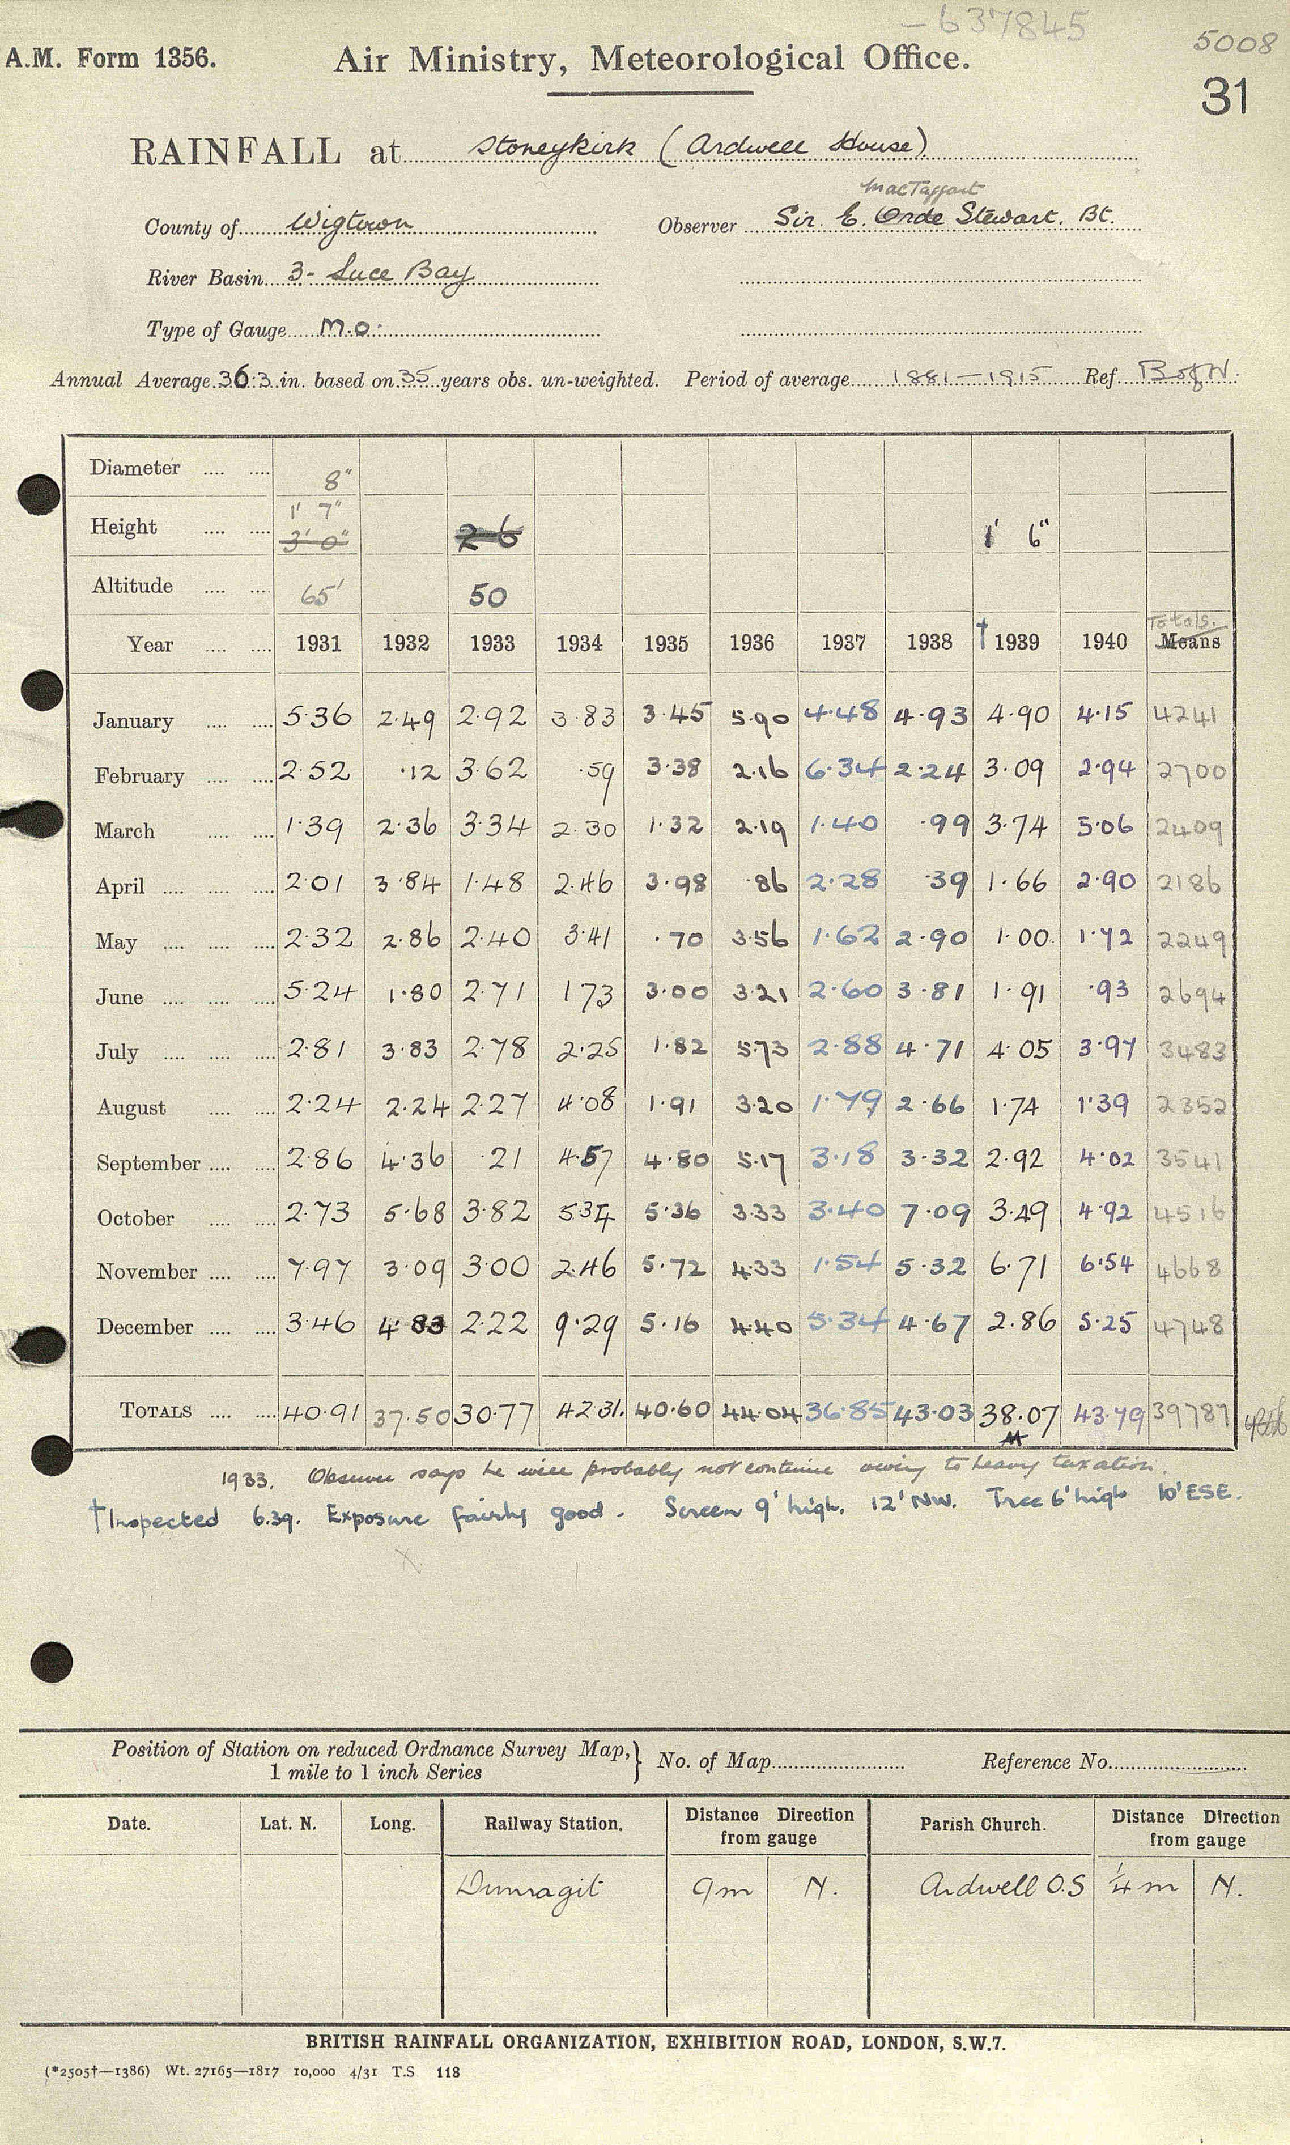 637845
A.M. Form 1356. Air Ministry, Meteorological Office. 5008
31
RAINFALL at Stoneykirk (Ardwell House)
MacTaggart
County of Wigtown Observer Sir E. Orde Stewart. Bt.
River Basin 3- Luce Bay
Type of Gauge M.O.
Annual Average 36.3 in. based on 35 years obs. un-weighted. Period of average 1881-1915 Ref. B of W
Diameter 8"
1' 7"
Height 3' 0" 2 6 1' 6"
Altitude 65' 50
Totals.
Year 1931 1932 1933 1934 1935 1936 1937 1938 †1939 1940 Means
January 5.36 2.49 2.92 3.83 3.45 5.90 4.48 4.93 4.90 4.15 4241
February 2.52 .12 3.62 .59 3.38 2.16 6.34 2.24 3.09 2.94 2700
March 1.39 2.36 3.34 2.30 1.32 2.19 1.40 .99 3.74 5.06 2409
April 2.01 3.84 1.48 2.46 3.98 86 2.28 .39 1.66 2.90 2186
May 2.32 2.86 2.40 3.41 .70 3.56 1.62 2.90 1.00 1.72 2249
June 5.24 1.80 2.71 173 3.00 3.21 2.60 3.81 1.91 .93 2694
July 2.81 3.83 2.78 2.25 1.82 5.73 2.88 4.71 4.05 3.97 3483
August 2.24 2.24 2.27 4.08 1.91 3.20 1.79 2.66 1.74 1.39 2352
September 2.86 4.36 .21 4.57 4.80 5.17 3.18 3.32 2.92 4.02 3541
October 2.73 5.68 3.82 5.34 5.36 3.33 3.40 7.09 3.49 4.92 4516
November 7.97 3.09 3.00 2.46 5.72 4.33 1.54 5.32 6.71 6.54 4668
December 3.46 4.83 2.22 9.29 5.16 4.40 5.34 4.67 2.86 5.25 4748
TOTALS 40.91 37.50 30.77 42.31. 40.60 44.04 36.85 43.03 38.07 43.79 39787
1933. Observer says he will probably not continue owing to heavy taxation.
†Inspected 6.39. Exposure fairly good. Screen 9' high. 12' NW. Tree 6' high 10' ESE.
Position of Station on reduced Ordnance Survey Map,} No. of Map Reference No.
1 mile to 1 inch Series
Date. Lat. N. Long. Railway Station. Distance Direction Parish Church. Distance Direction
from gauge from gauge
Dunragit 9m N. Ardwell O.S ¼ m N.
BRITISH RAINFALL ORGANIZATION, EXHIBITION ROAD, LONDON, S.W.7.
(*2505†—1386) Wt. 27165—1817 10,000 4/31 T.S 118